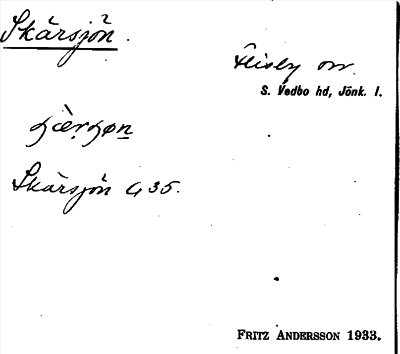 Skärsjön.
Flisby sn.
S. Vedbo hd, Jönk. l.
Skärsjön G 35.
FRITZ ANDERSSON 1933.